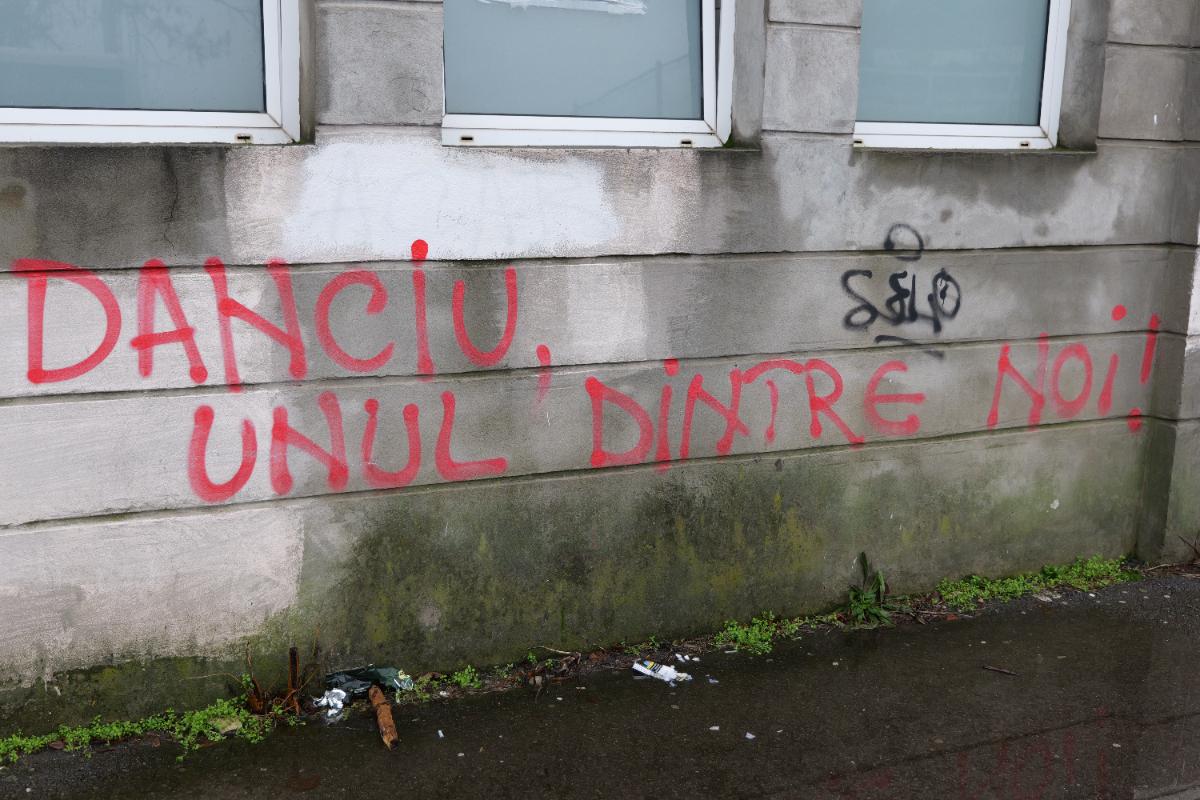 DANCiU,
UNUL DiNTRE NOi!